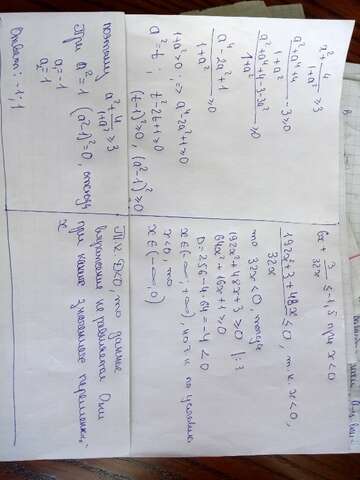 a² + 4/(1+a²) ≥ 3
(a²+a⁴+4)/(1+a²) - 3 ≥ 0
(a²+a⁴+4-3-3a²)/(1+a²) ≥ 0
(a⁴-2a²+1)/(1+a²) ≥ 0
1+a² > 0; => a⁴-2a²+1 ≥ 0
a² = t; t²-2t+1 ≥ 0
(t-1)² ≥ 0, (a²-1)² ≥ 0
поэтому a² + 4/(1+a²) ≥ 3
При a² = 1 (a²-1)² = 0, отсюда
a₁ = -1
a₂ = 1
Ответ: -1; 1
6x + 3/(32x) ≤ -1,5 при x < 0
(192x²+3+48x)/(32x) ≤ 0, т.к. x < 0,
то 32x < 0, тогда
192x²+48x+3 ≥ 0 |:3
64x²+16x+1 ≥ 0
D = 256-4·64 = -4 < 0
x ∈ (-∞; +∞), но т.к по условию
x < 0, то
x ∈ (-∞; 0)
Т.к D < 0, то данные
выражение не равняется Они
при каких значениях переменных
x